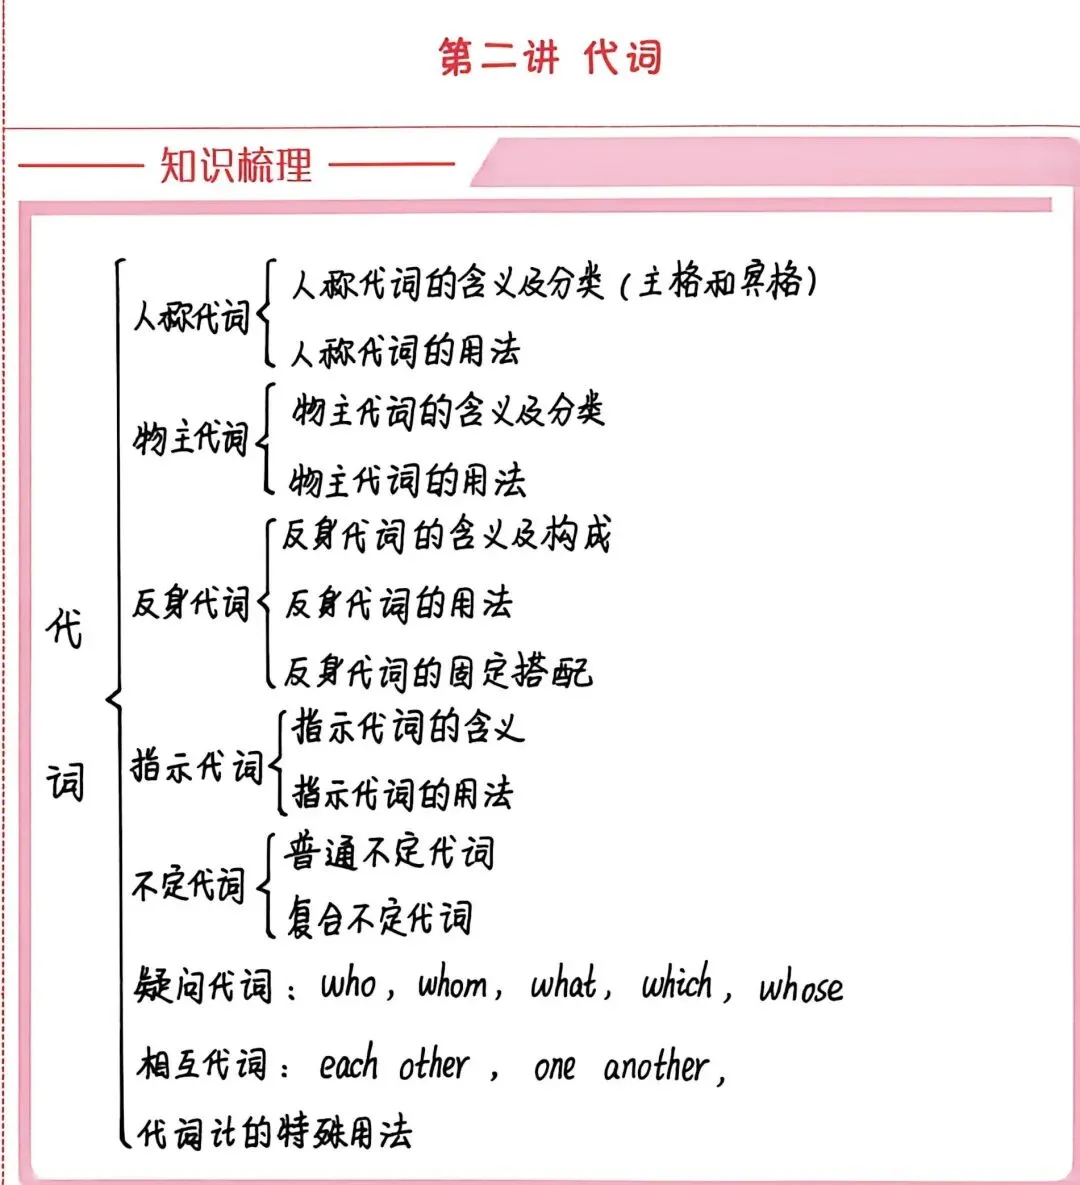 第二讲 代词
知识梳理
代词
人称代词
人称代词的含义及分类(主格和宾格)
人称代词的用法
物主代词
物主代词的含义及分类
物主代词的用法
反身代词
反身代词的含义及构成
反身代词的用法
反身代词的固定搭配
指示代词
指示代词的含义
指示代词的用法
不定代词
普通不定代词
复合不定代词
疑问代词：who, whom, what, which, whose
相互代词：each other, one another,
代词计的特殊用法